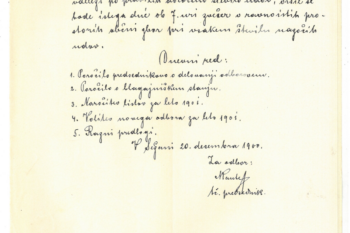 vršil se
bode istega dné ob 7. uri zvečer v ravnoistih pro-
storih občni zbor pri vsakem številu navzočih
udov.
Dnevni red:
1. Poročilo predsednikovo o delovanji odborovem.
2. Poročilo o blagajniškem stanju.
3. Naročitev listov za leto 1901.
4. Volitev novega odbora za leto 1901.
5. Razni predlogi.
V Seljani 20. decembra 1900.
Za odbor:
t. č. predsednik.